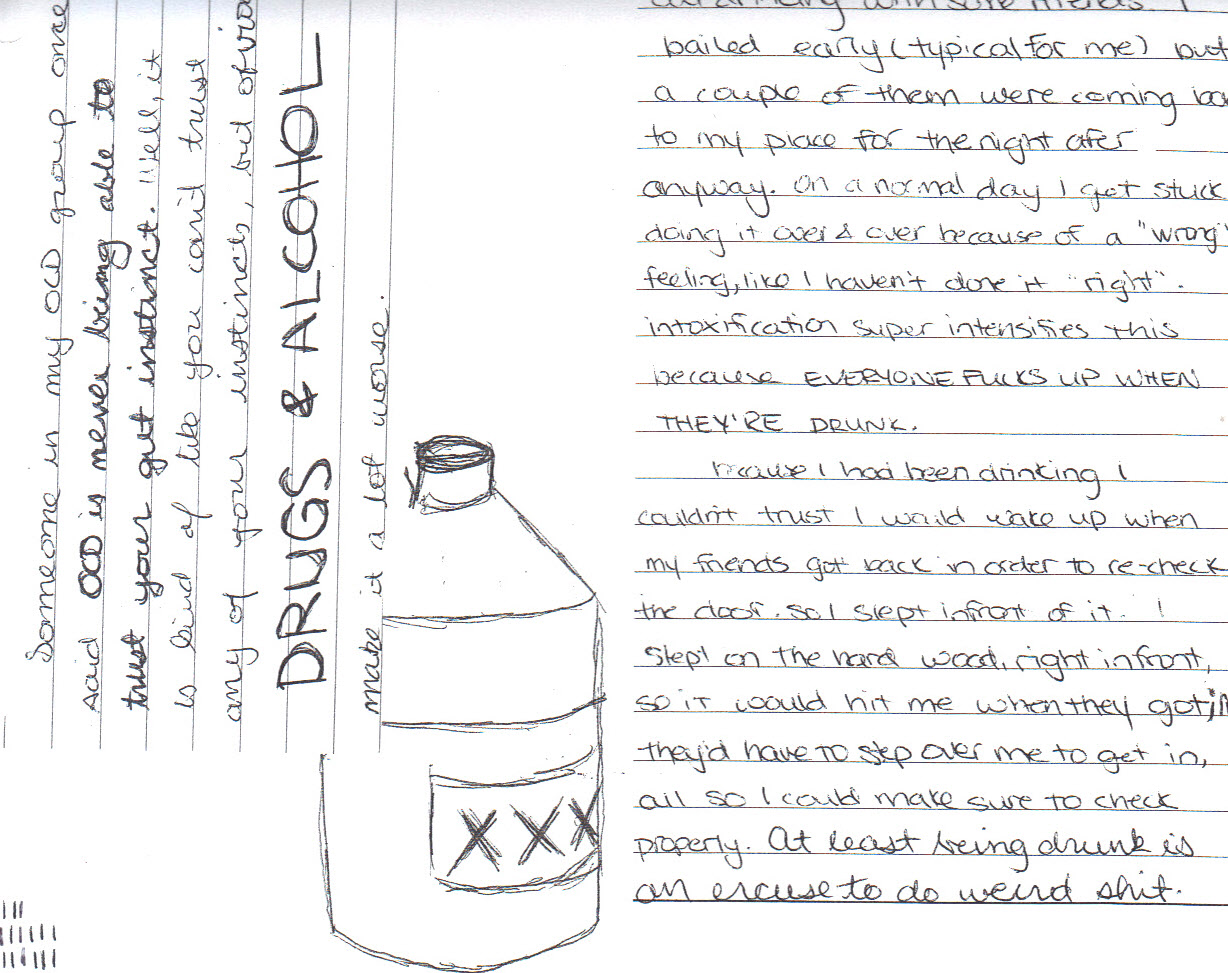 Someone in my OCD group once
said OCD is never being able to
trust your gut instinct. Well, it
is kind of like you can't trust
any of your instincts, but
DRUGS & ALCOHOL
make it a lot worse.
with friends. I
bailed early (typical for me) but
a couple of them were coming
to my place for the night afer
anyway. On a normal day I get stuck
doing it over & over because of a "wrong"
feeling, like I haven't done it "right".
intoxification super intensifies this
because EVERYONE FUCKS UP WHEN
THEY'RE DRUNK.
because I had been drinking I
couldn't trust I would wake up when
my friends got back in order to re-check
the door. so I slept infront of it. I
slept on the hard wood, right infront,
so it would hit me when they got in
they'd have to step over me to get in,
all so I could make sure to check
properly. At least being drunk is
an excuse to do weird shit.
XXX